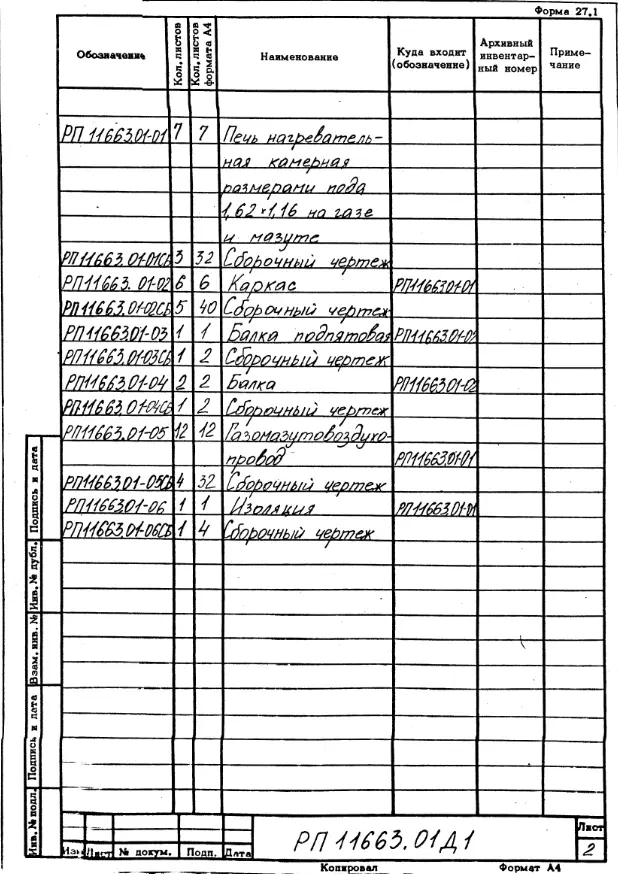 Форма 27.1
Обозначение Кол. листов Кол. листов формата А4 Наименование Куда входит (обозначение) Архивный инвентар- ный номер Приме- чание
РП 11663.01-01 7 7 Печь нагреватель-
ная камерная
размерами пода
1,62×1,16 на газе
и мазуте
РП11663.01-01СБ 3 32 Сборочный чертеж
РП11663.01-02 6 6 Каркас РП11663.01-01
РП11663.01-02СБ 5 40 Сборочный чертеж
РП1166301-03 1 1 Балка подпятовая РП11663.01-02
РП11663.01-03СБ 1 2 Сборочный чертеж
РП11663.01-04 2 2 Балка РП11663.01-02
РП11663.01-04СБ 1 2 Сборочный чертеж
РП11663.01-05 12 12 Газомазутовоздухо-
провод РП11663.01-01
РП11663.01-05СБ 4 32 Сборочный чертеж
РП11663.01-06 1 1 Изоляция РП11663.01-01
РП11663.01-06СБ 1 4 Сборочный чертеж
Подпись и дата
Инв. № дубл.
Взам. инв. №
Подпись и дата
Инв. № подл.
Изм Лист № докум. Подп. Дата
РП 11663.01Д1
Лист
2
Копировал Формат А4